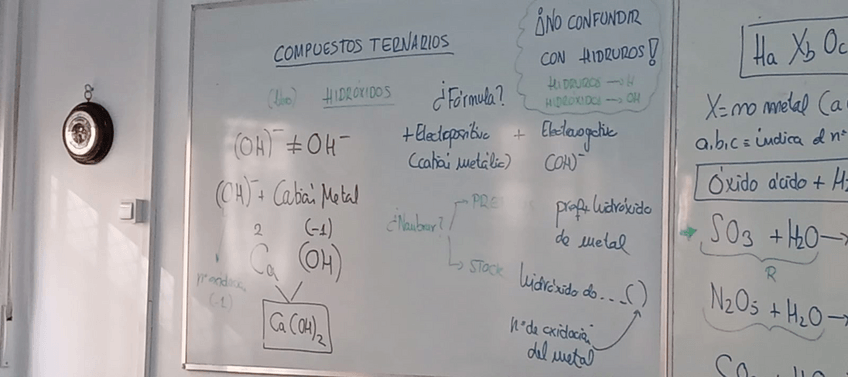 COMPUESTOS TERNARIOS
HIDRÓXIDOS
¡NO CONFUNDIR
CON HIDRUROS!
HIDRUROS → H
HIDRÓXIDOS → OH
¿Fórmula?
(OH)⁻ ≠ OH⁻
+ Electropositivo + Electronegativo
(catión metálico) (OH)⁻
(OH)⁻ + Catión Metal
2 (-1)
Ca (OH)
(-1)
Ca(OH)₂
¿Nombrar?
→ PRE
pref + hidróxido
de metal
→ STOCK
hidróxido de...()
nº de oxidación
del metal
Ha Xb Oc
X = no metal (a
a,b,c = indica el nº
Óxido ácido + H₂
SO₃ + H₂O →
R
N₂O₅ + H₂O →